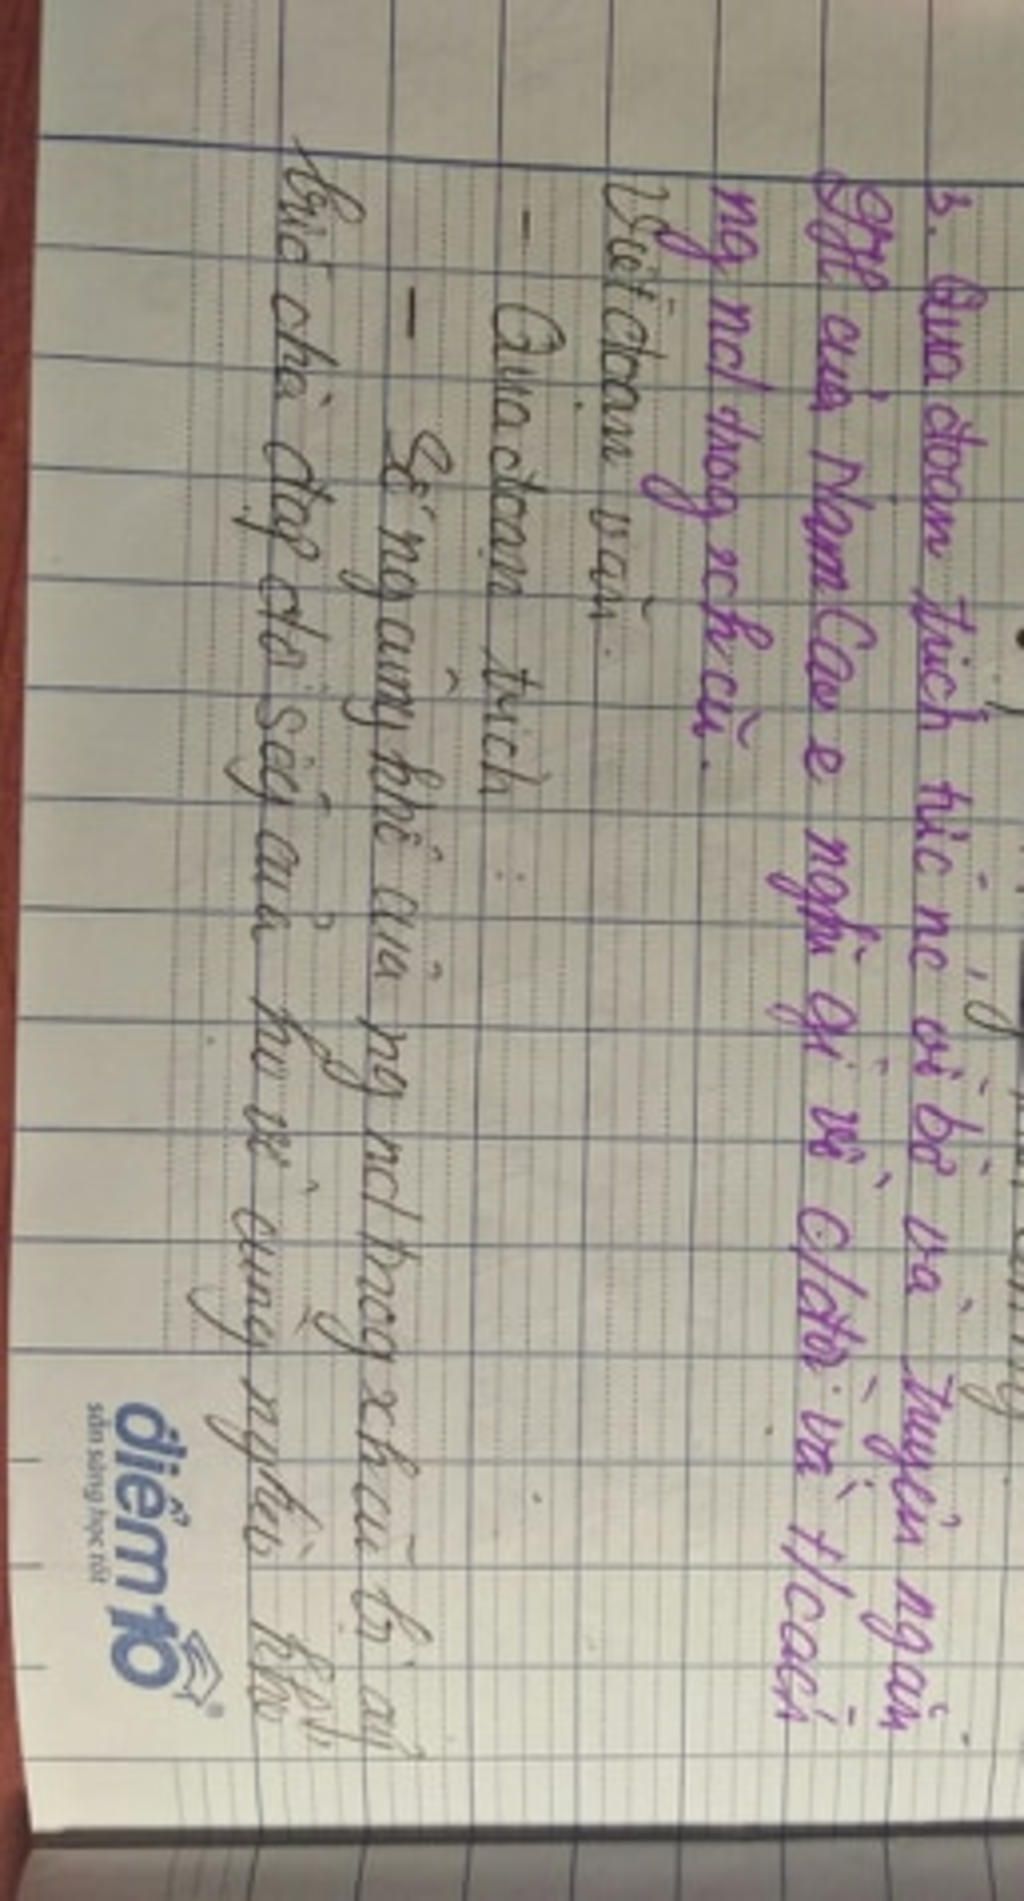 3. Qua đoạn trích tức nc vỡ bờ và truyện ngắn
của Nam Cao e nghĩ gì về c/đời và t/cách
ng nd trog xh cũ.
Viết đoạn văn.
- Qua đoạn trích :
- Số ng của ng nd trog xh cũ bị áp
bức chà đạp đời sốg của họ vô cùng nghèo khổ
điểm 10
sẵn sàng học tốt